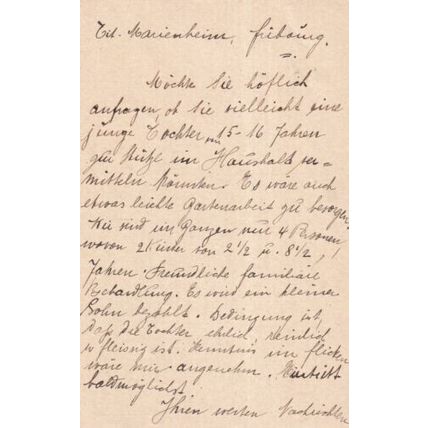 Tit. Marienheim, Fribourg.
Möchte Sie höflich
anfragen, ob Sie vielleicht eine
junge Tochter von 15-16 Jahren
zur Stütze im Haushalt ver-
mitteln könnten. Es wäre auch
etwas leichte Gartenarbeit zu besorgen.
Wir sind im Ganzen nur 4 Personen,
wovon 2 Kinder von 2 1/2 u. 8 1/2,
Jahren. Freundliche familiäre
Behandlung. Es wird ein kleiner
Lohn bezahlt. Bedingung ist,
daß die Tochter ehrlich, reinlich
u fleissig ist. Kenntnis im flicken
wäre mir angenehm. Eintritt
baldmöglichst.
Ihren werten Nachrichten